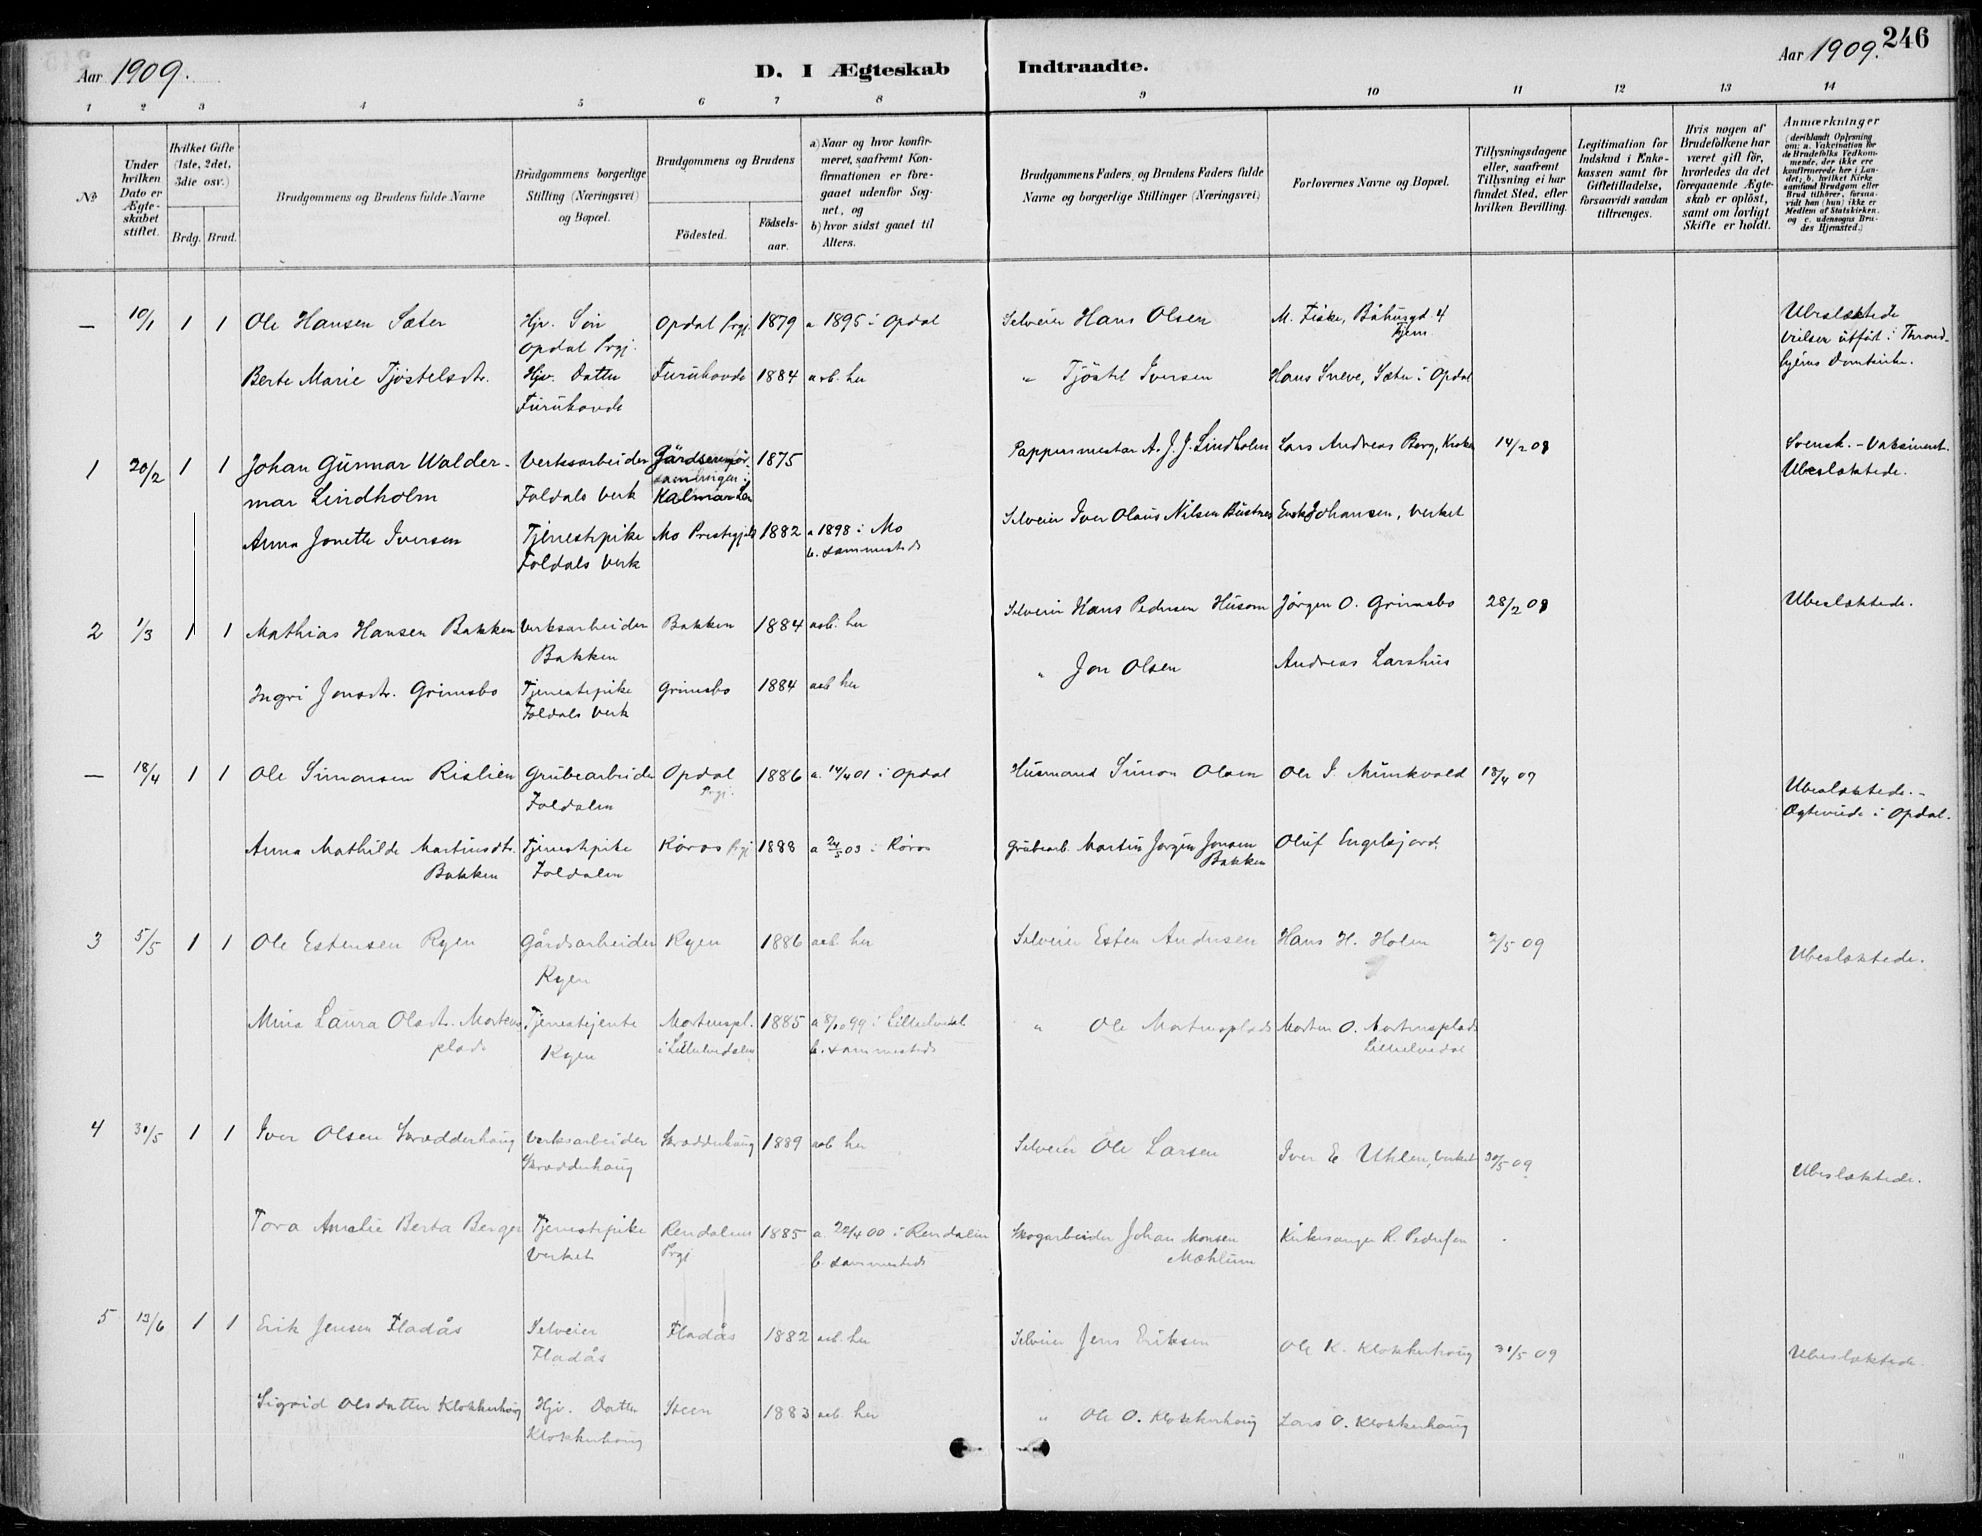 246
Aar 1909.
D. I Ægteskab Indtraadte.
Aar 1909.
1 2 3 4 5 6 7 8 9 10 11 12 13 14
№
Under hvilken Dato er Ægteskabet stiftet.
Hvilket Gifte (1ste, 2det, 3die osv.)
Brdg. Brud.
Brudgommens og Brudens fulde Navne
Brudgommens borgerlige Stilling (Næringsvei) og Bopæl.
Brudgommens og Brudens
Födested.
Födsels-aar.
a) Naar og hvor konfir-
meret, saafremt Kon-
firmationen er fore-
gaaet udenfor Sog-
net, og
b) hvor sidst gaaet til
Alters.
Brudgommens Faders og Brudens Faders fulde
Navne og borgerlige Stillinger (Næringsvei)
Forlovernes Navne og Bopæl.
Tillysningsdagene
eller, saafremt
Tillysning ei har
fundet Sted, efter
hvilken Bevilling.
Legitimation for
Indskud i Enke-
kassen samt for
Giftetilladelse,
forsaavidt saadan
tiltrænges.
Hvis nogen af
Brudefolkene har
været gift för,
hvorledes da det
foregaaende Ægte-
skab er oplöst,
samt om lovligt
Skifte er holdt.
Anmærkninger
(deriblandt Oplysning
om: a. Vakcination for
de Brudefolks Vedkom-
mende, der ikke ere
konfirmerede her i Lan-
det; b. hvilket Kirke
samfund Brudgom eller
Brud tilhörer, forsaa-
vidt han (hun) ikke er
Medlem af Statskirken,
og c. udensogns Bru-
des Hjemsted.)
— 10/1 1 1 Ole Hansen Sæter Hjv. Søn Opdal Prgj. Opdal Prgj. 1879 a 1895 i Opdal Selveier Hans Olsen M. Fiske, Båhusgd 4 Ubeslektede
Vielsen utført i Thrond-
hjems Domkirke.
Berte Marie Tjøstelsdtr. Hjv. Datter Furuhovde Furuhovde 1884 a o b. her " Tjøstel Iversen Hans Sneve, Sæter i Opdal
1 20/2 1 1 Johan Gunnar Walder-
mar Lindholm Verksarbeider Foldals Verk Kalmar Len 1875 A. J. J. Lindholm Lars Andreas Borg, 14/2 09 Svensk. - Vaksinert.
Ubeslæktede.
Anna Jonette Iversen Tjenestepike Foldals Verk Mo Prestegjeld 1882 a 1898 i Mo
b. sammesteds Selveier Iver Olaus Nilsen Johansen, Verket
2 1/3 1 1 Mathias Hansen Bakken Verksarbeider Bakken Bakken 1884 aob. her Selveier Hans Pedersen Husom Jørgen O. Grimsbo 28/2 09 Ubeslæktede.
Ingri Jonsdtr. Grimsbo Tjenestepike Foldals Verk Grimsbo 1884 aob her " Jon Olsen Andreas Larshus
— 18/4 1 1 Ole Simonsen Rislien Grubearbeider Foldalen Opdal Prgj. 1886 a. 14/4 01 i Opdal Husmand Simon Olsen Ole J. Munkvold 18/4 09 Ubeslæktede. -
Ægteviede i Opdal.
Anna Mathilde Martinsdtr.
Bakken Tjenestepike Foldalen Røros Prgj 1888 a 24/5 03 i Røros Grubearb. Martin Jørgen Jonsen
Bakken Oluf Engelsjord.
3 5/5 1 1 Ole Estensen Ryen Gårdsarbeider Ryen Ryen 1886 aob. her Selveier Esten Andersen Hans H. Holm 2/5 09 Ubeslæktede.
Mina Laura Olsdtr. Mortens-
plads Tjenestejente Ryen Mortenspl.
i Lilleelvedalen 1885 a 8/10 99 i Lilleelvedal
b. sammesteds " Ole Mortensplads Morten O. Mortensplads
Lilleelvedal
4 31/5 1 1 Iver Olsen Skrædderhaug Verksarbeider Skrædderhaug Skrædderhaug 1889 aob her Selveier Ole Larsen Iver E Uhlen, Verket 30/5 09 Ubeslæktede.
Tora Amalie Berta Berger Tjenestepike Verket Rendalens Prgj 1885 a. 22/4 00 i Rendalen
b. sammesteds Skogarbeider Johan Monsen
Mæhlum Kirkesanger R. Pedersen
5 13/6 1 1 Erik Jensen Fladås Selveier Fladås Fladås 1882 aob. her Selveier Jens Eriksen Ole K. Klokkerhaug 31/5 09 Ubeslæktede.
Sigrid Olsdatter Klokkerhaug Hjv. Datter Klokkerhaug Steen 1883 aob. her " Ole O. Klokkerhaug Lars O. Klokkerhaug